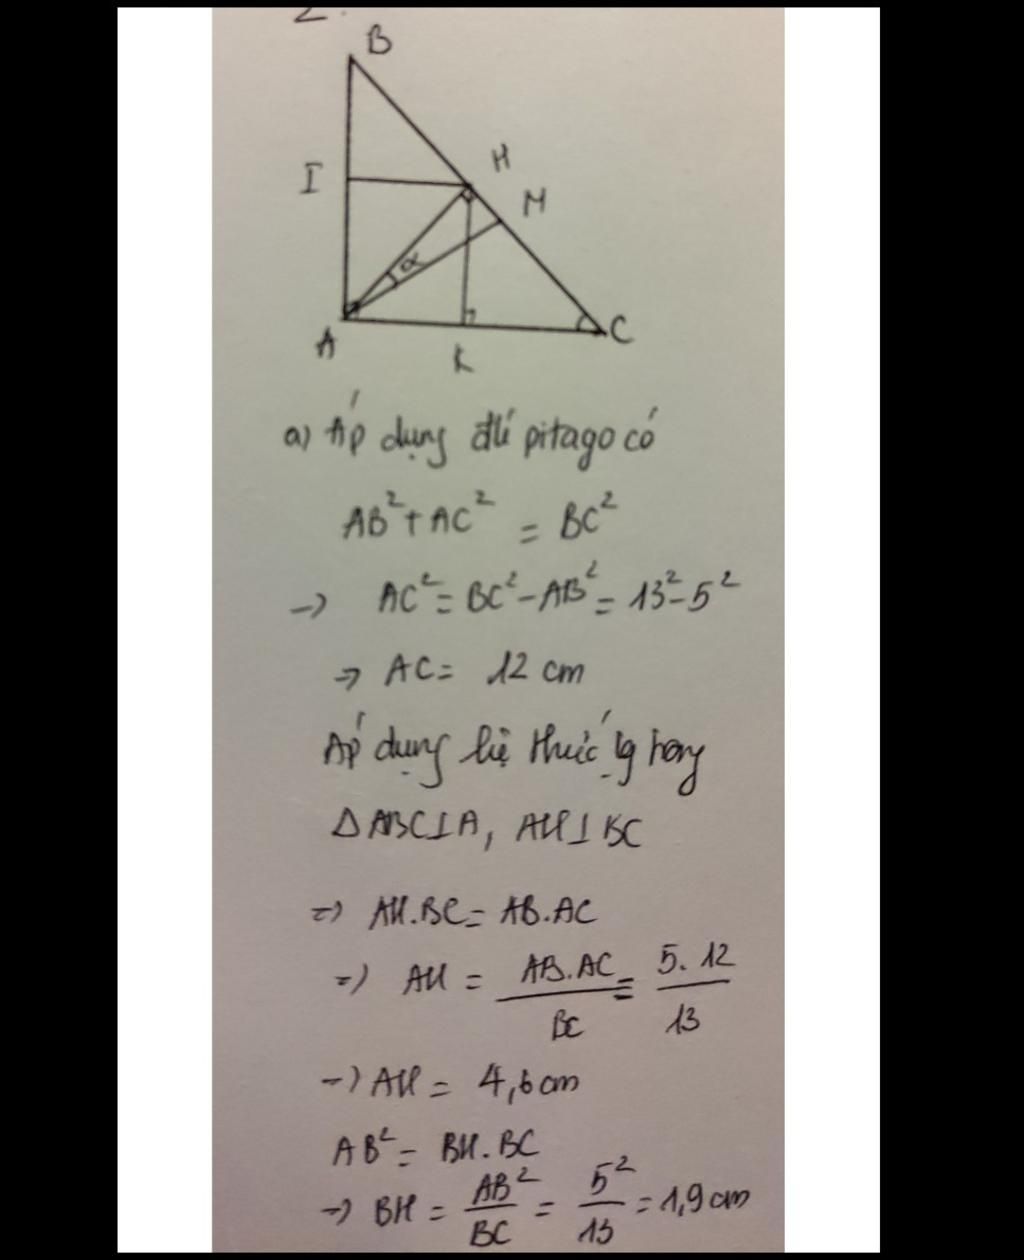 2.
B
I
H
M
α
A
K
C
a) Áp dụng đlí pitago có
AB² + AC² = BC²
→ AC² = BC² - AB² = 13² - 5²
→ AC = 12 cm
Áp dụng hệ thức lg trong
Δ ABC ⊥ A, AH ⊥ BC
=> AH.BC = AB.AC
=> AH = AB.AC / BC = 5.12 / 13
→ AH = 4,6 cm
AB² = BH.BC
→ BH = AB² / BC = 5² / 13 = 1,9 cm